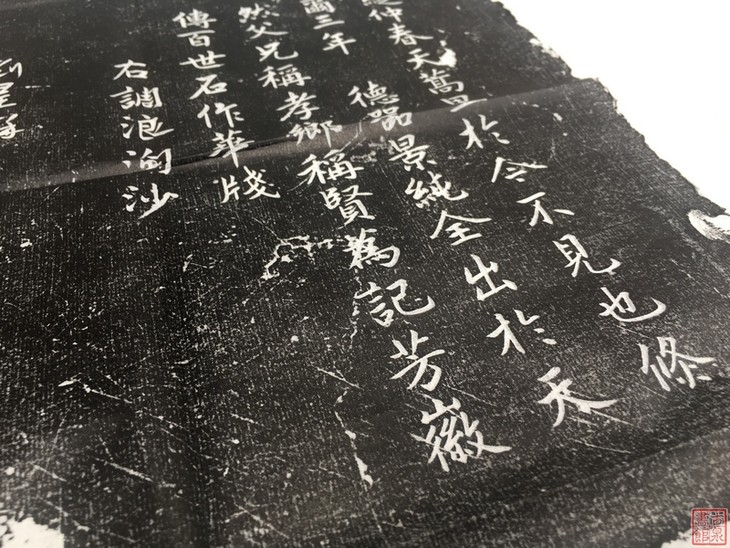 仲春天於今不見也修
三年 德器景純全出於天
然父兄稱孝鄉稱賢爲記芳徽
傳百世石作華牋
右調浪淘沙